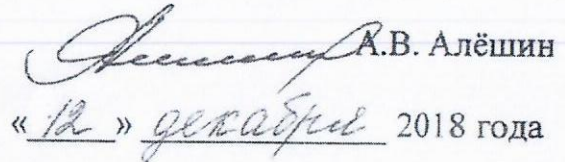 А.В. Алёшин
« 12 » декабря 2018 года